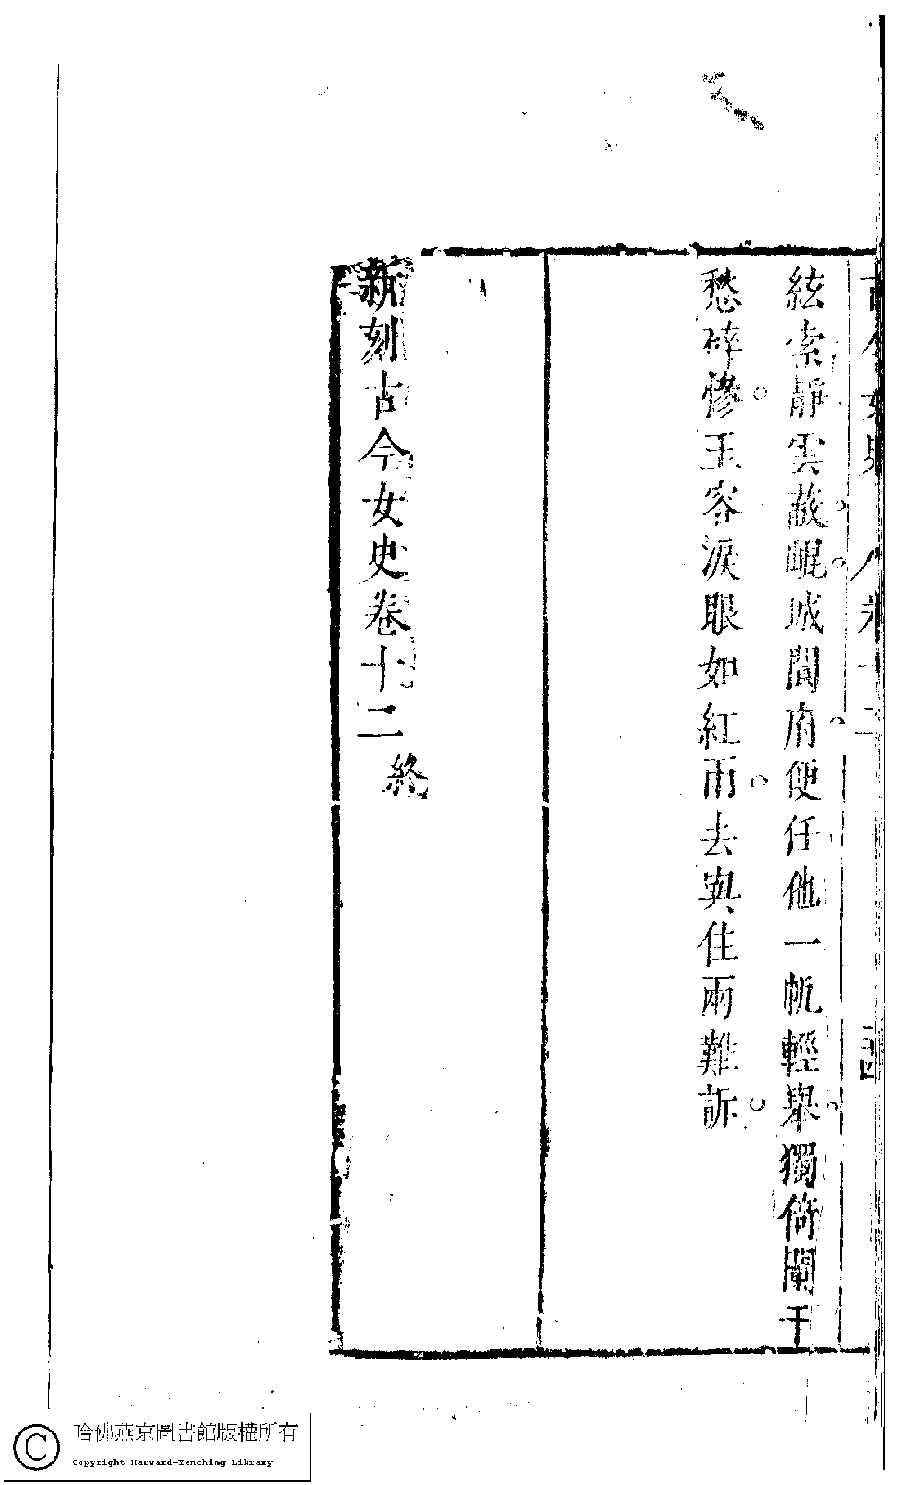 古今女史 卷十二
絃索靜雲蔽崐城閬府便任他一帆輕舉獨倚闌干
愁碎慘玉容淚眼如紅雨去與住兩難訴
新刻古今女史卷十二終
哈佛燕京圖書館版權所有
Copyright Harvard-Yenching Library